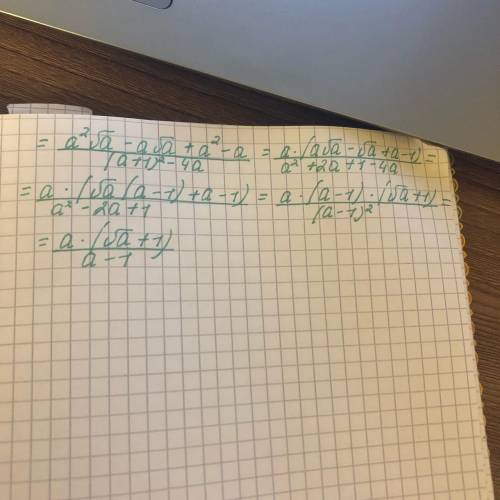 = (a²√a - a√a + a² - a)/((a+1)² - 4a) = (a·(a√a - √a + a - 1))/(a² + 2a + 1 - 4a) =
= (a·(√a(a-1) + a - 1))/(a² - 2a + 1) = (a·(a-1)·(√a+1))/((a-1)²) =
= (a·(√a+1))/(a-1)